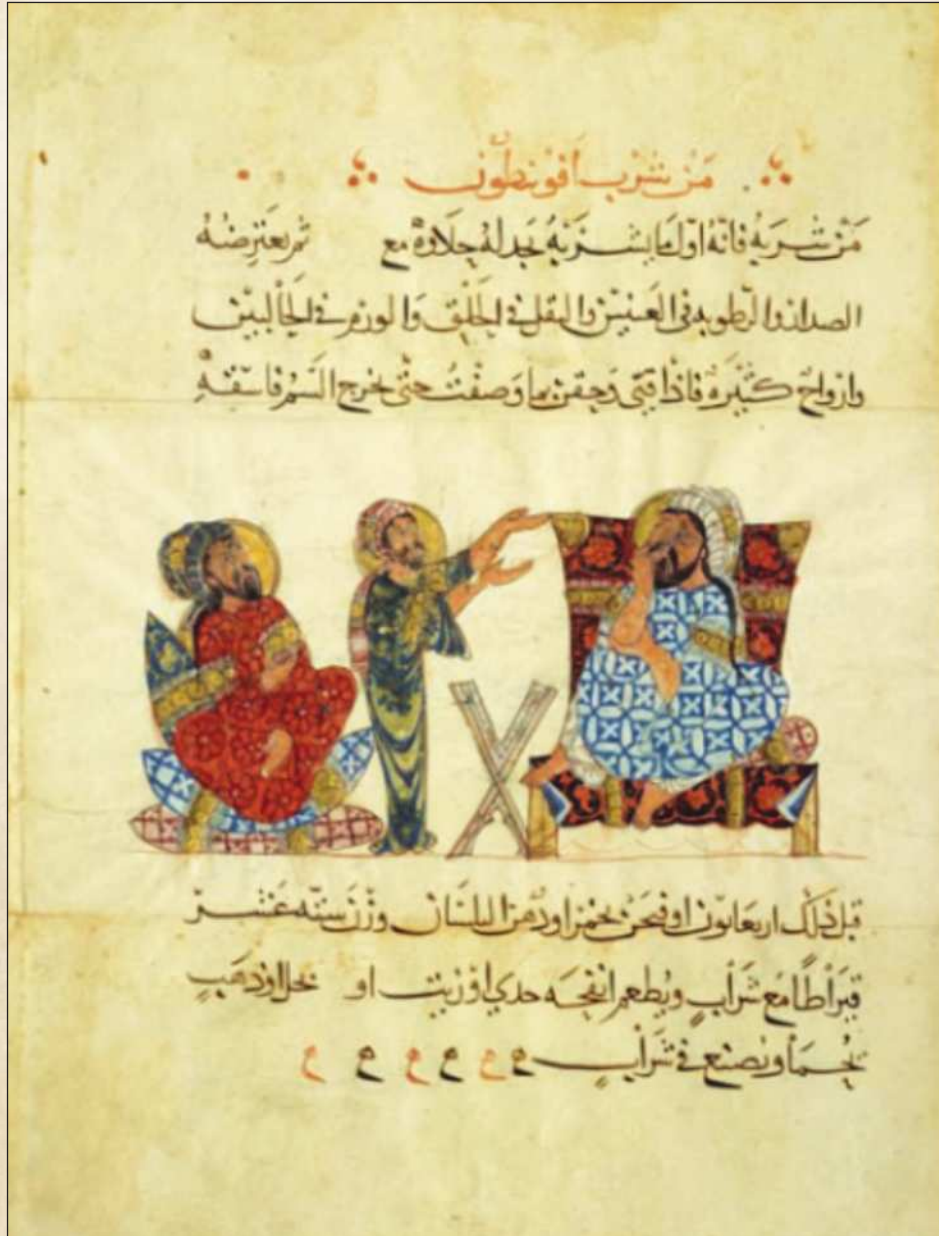 من شرب افونيطون
من شربه فانه اول ما يشربه يجد له حلاوة مع ثم يعترضه
الصداع والرطوبه في العينين والثقل في الحلق والورم في الجالبين
وارواح كثيرة فاذا قيئ وحقن بما وصفت حتى يخرج السم فاسقه
قبل ذلك اربعا بخمر او دهن البلسان وزن سته عشر
قيراطا مع شراب ويطعم انفحه جدي او زيت او بخل او ذهب
يحما ويصنع في شراب و و و و و و و